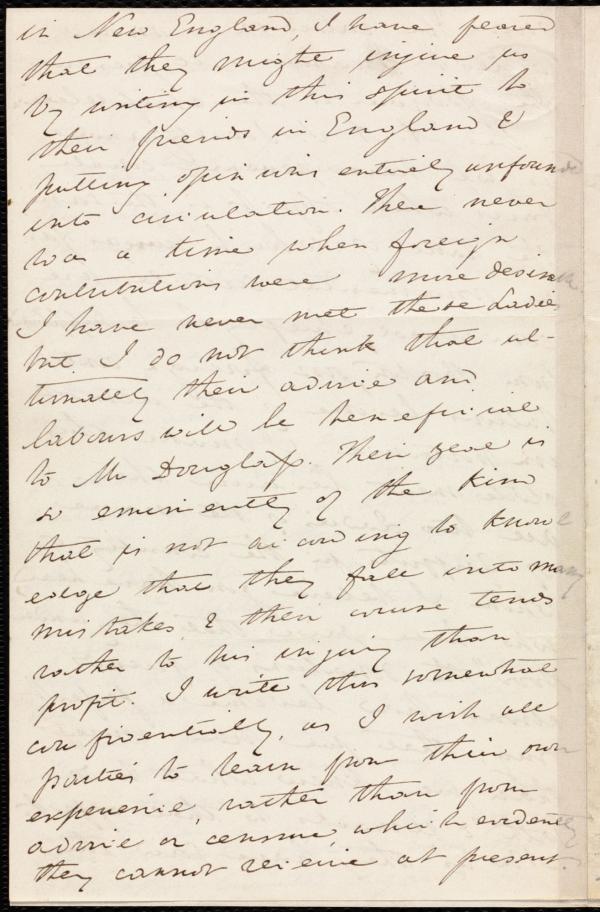 in New England, I have feared
that they might injure us
by writing in this spirit to
their friends in England &
putting opinions entirely unfounded
into circulation. There never
was a time when foreign
contributions were more desirable
I have never met these Ladies
but I do not think that ul-
timately their advice and
labours will be beneficial
to Mr Douglass. Their zeal is
so eminently of the kind
that is not according to knowl
edge that they fall into many
mistakes & their course tends
rather to his injury than
profit. I write this somewhat
confidentially, as I wish all
parties to learn from their own
experience, rather than from
advice or censure, which evidently
they cannot receive at present.